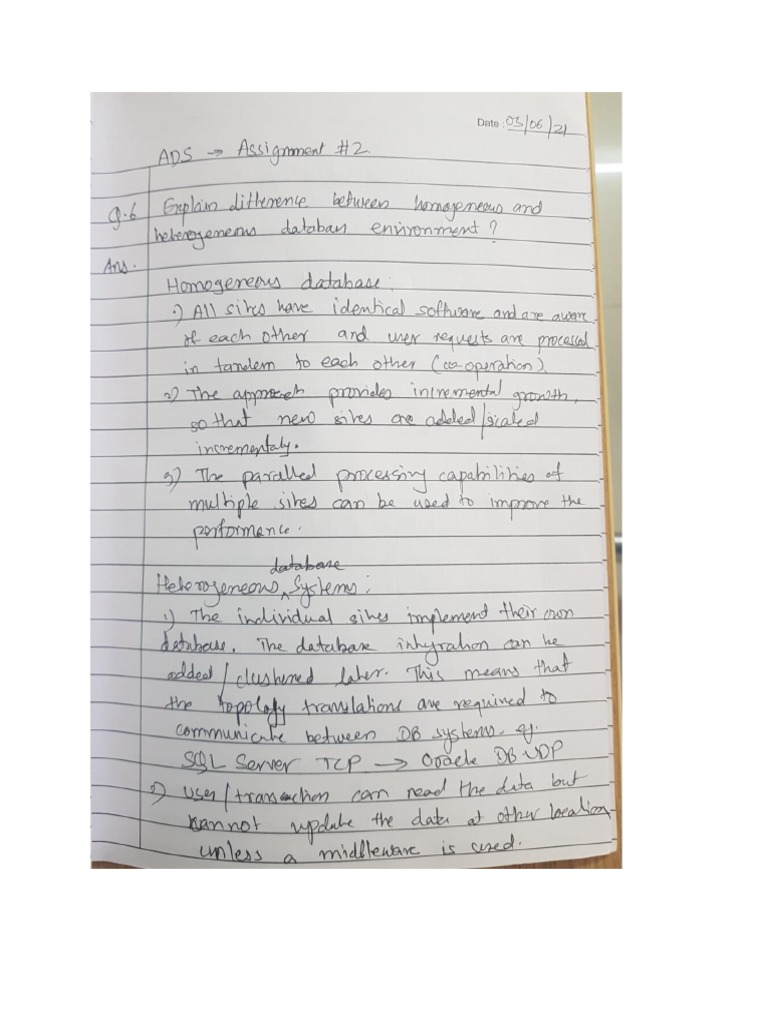 Date : 03/06/21
ADS → Assignment #2
Q.6 Explain difference between homogeneous and
heterogeneous databas environment ?
Ans.
Homogeneous database :
1) All sites have identical software and are aware
of each other and user requests are processed
in tandem to each other (co-operation)
2) The approach provides incremental growth,
so that new sites are added/scaled
incrementaly.
3) The paralled processing capabilities of
multiple sites can be used to improve the
performance.
database
Heterogeneous ^ Systems :
1) The individual sites implement their own
database. The database intrgration can be
added / clushened later. This means that
the topology translations are required to
communicate between DB systems. eg.
SQL Server TCP → Oracle DB UDP
2) User/transaction can read the data but
cannot update the data at other location
unless a middleware is used.